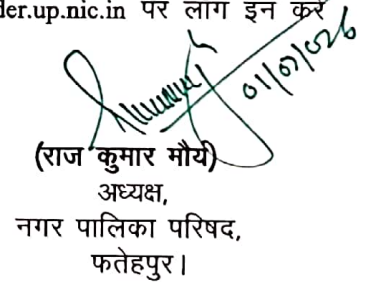 der.up.nic.in पर लाग इन करें
01/07/026
(राज कुमार मौर्य)
अध्यक्ष,
नगर पालिका परिषद,
फतेहपुर।